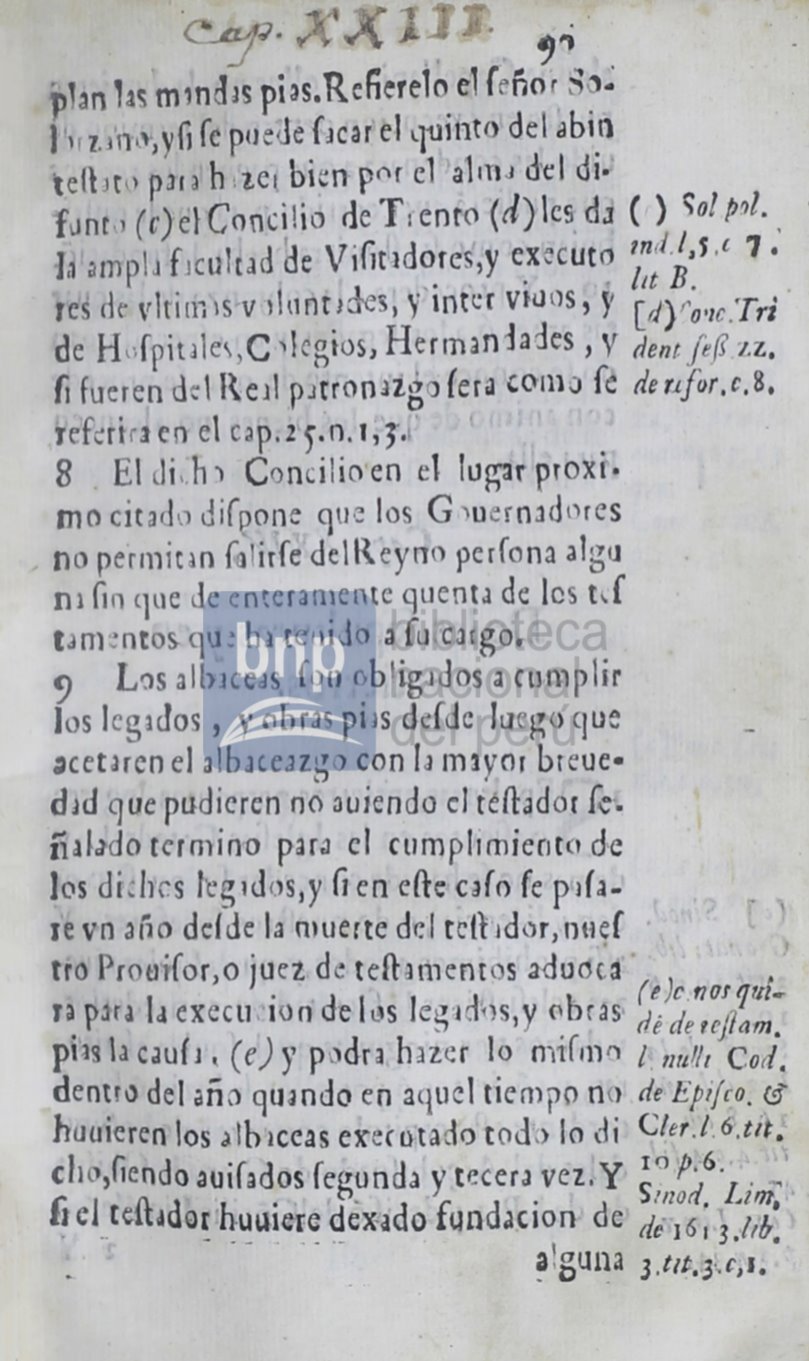 Cap. XXIII.
plan las mandas pias. Refierelo el señor So-
lorzano, y si se puede sacar el quinto del abin
testato para hazer bien por el alma del di-
funto (c) el Concilio de Trento (d) les da
la ampla facultad de Visitadores, y executo
res de vltimas voluntades, y inter viuos, y
de Hospitales, Colegios, Hermandades, y
si fueren del Real patronazgo sera como se
referira en el cap. 25. n. 1, 3.
8 El dicho Concilio en el lugar proxi-
mo citado dispone que los Gouernadores
no permitan salirse del Reyno persona algu
na sin que de enteramente quenta de los tes
tamentos que ha tenido a su cargo.
9 Los albaceas son obligados a cumplir
los legados, y obras pias desde luego que
acetaren el albaceazgo con la mayor breue-
dad que pudieren no auiendo el testador se-
ñalado termino para el cumplimiento de
los dichos legados, y si en este caso se pasa-
re vn año desde la muerte del testador, nues
tro Prouisor, o juez de testamentos aduoca
ra para la execucion de los legados, y obras
pias la causa, (e) y podra hazer lo mismo
dentro del año quando en aquel tiempo no
huuieren los albaceas executado todo lo di
cho, siendo auisados segunda y tecera vez. Y
si el testador huuiere dexado fundacion de
alguna
( ) Sol pol.
ind. l, 5. c 7.
lit B.
[d) Conc. Tri
dent seß. 22.
de refor. c. 8.
(e) c nos qui-
dē de testam.
l nulli Cod.
de Episco. &
Cler. l. 6. tit.
10 p. 6.
Sinod. Lim,
de 1613. lib.
3. tit. 3. c, 1.
bnp biblioteca
nacional
del perú